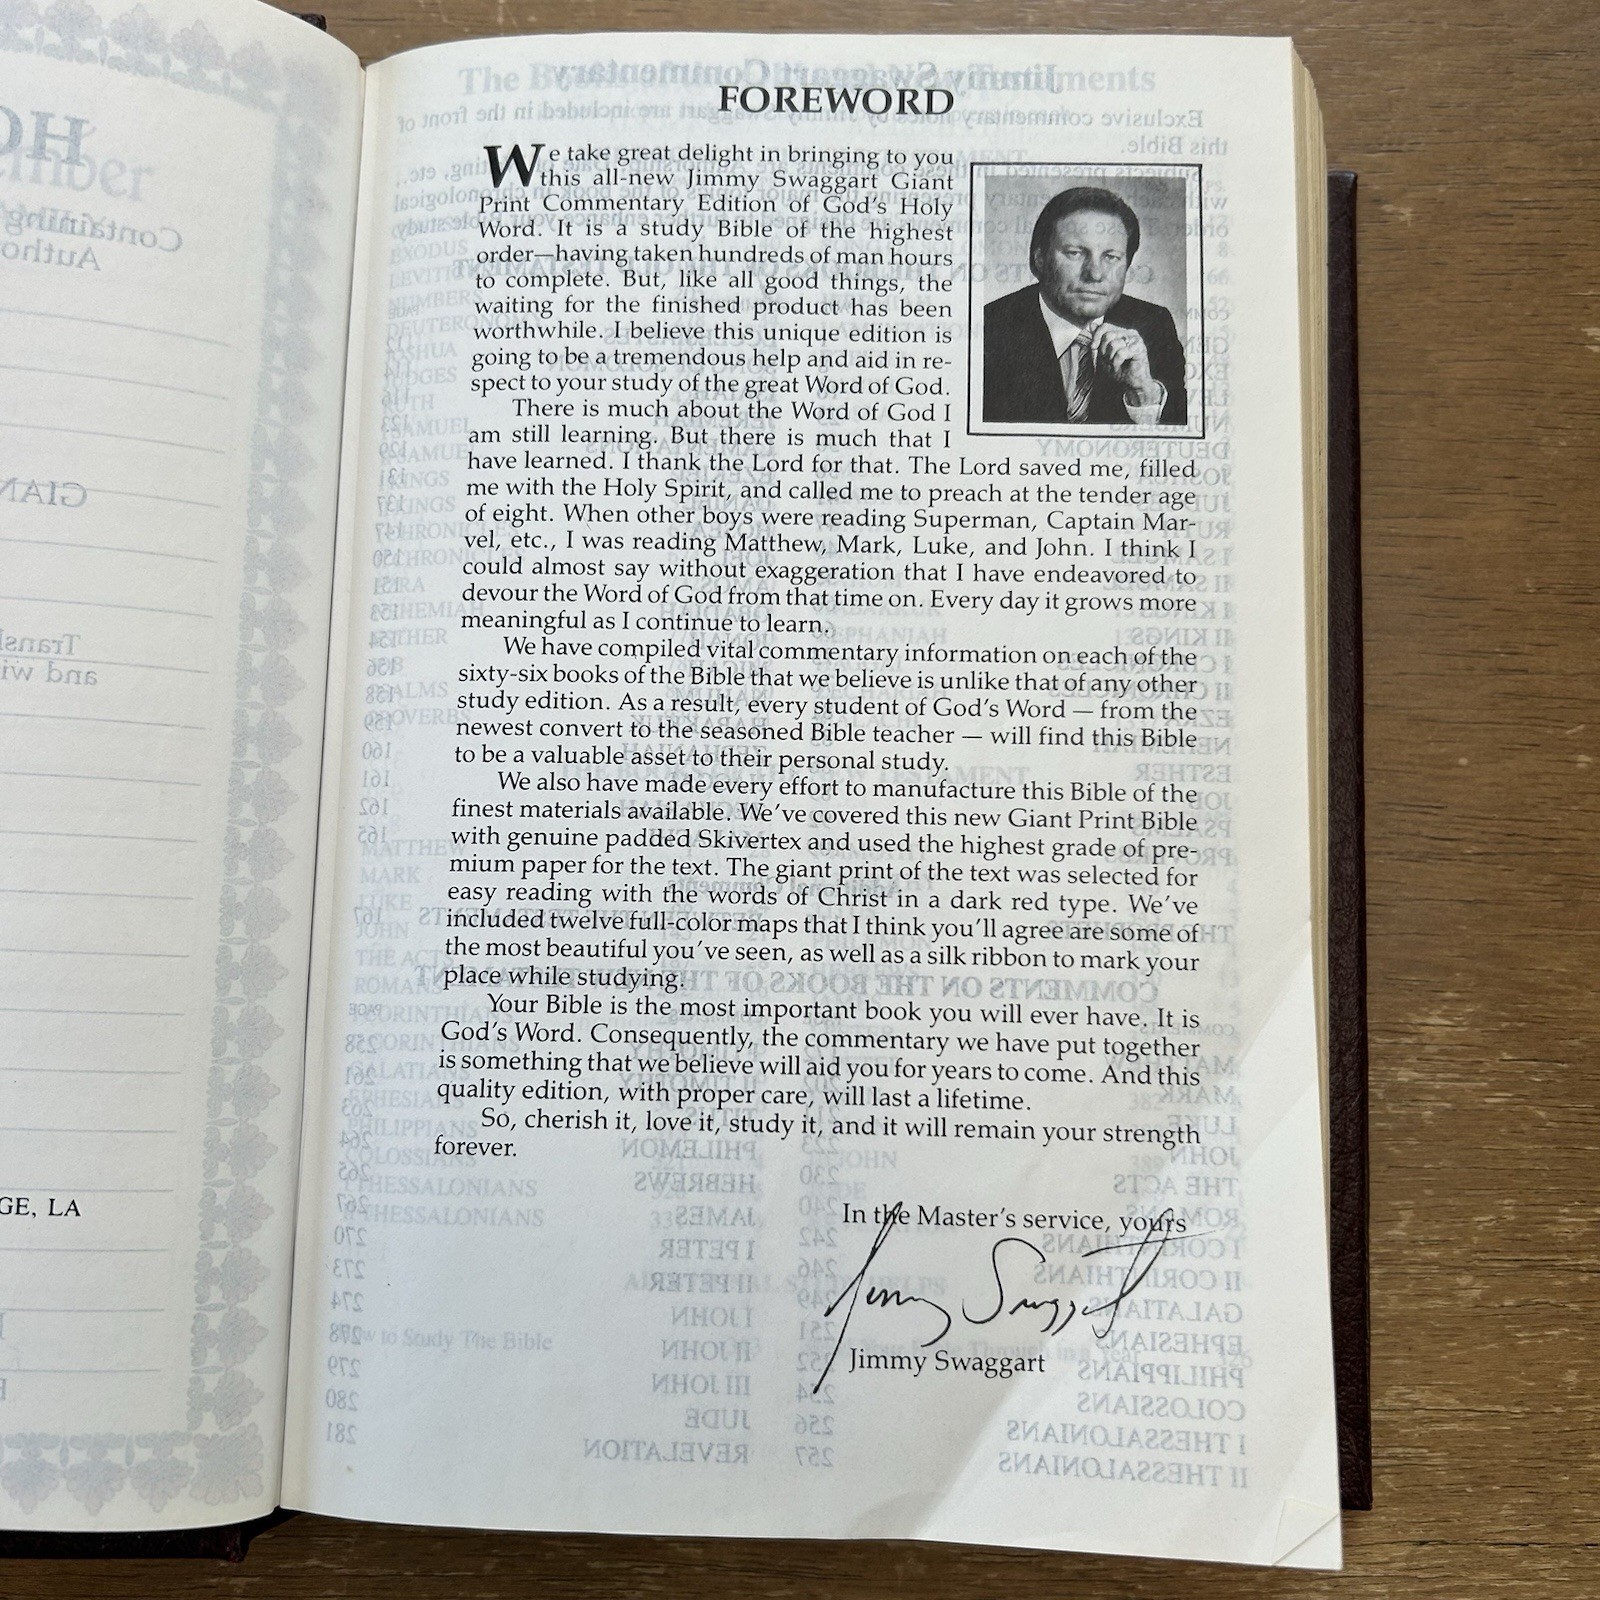 FOREWORD
We take great delight in bringing to you
this all-new Jimmy Swaggart Giant
Print Commentary Edition of God's Holy
Word. It is a study Bible of the highest
order—having taken hundreds of man hours
to complete. But, like all good things, the
waiting for the finished product has been
worthwhile. I believe this unique edition is
going to be a tremendous help and aid in re-
spect to your study of the great Word of God.
There is much about the Word of God I
am still learning. But there is much that I
have learned. I thank the Lord for that. The Lord saved me, filled
me with the Holy Spirit, and called me to preach at the tender age
of eight. When other boys were reading Superman, Captain Mar-
vel, etc., I was reading Matthew, Mark, Luke, and John. I think I
could almost say without exaggeration that I have endeavored to
devour the Word of God from that time on. Every day it grows more
meaningful as I continue to learn.
We have compiled vital commentary information on each of the
sixty-six books of the Bible that we believe is unlike that of any other
study edition. As a result, every student of God's Word — from the
newest convert to the seasoned Bible teacher — will find this Bible
to be a valuable asset to their personal study.
We also have made every effort to manufacture this Bible of the
finest materials available. We've covered this new Giant Print Bible
with genuine padded Skivertex and used the highest grade of pre-
mium paper for the text. The giant print of the text was selected for
easy reading with the words of Christ in a dark red type. We've
included twelve full-color maps that I think you'll agree are some of
the most beautiful you've seen, as well as a silk ribbon to mark your
place while studying.
Your Bible is the most important book you will ever have. It is
God's Word. Consequently, the commentary we have put together
is something that we believe will aid you for years to come. And this
quality edition, with proper care, will last a lifetime.
So, cherish it, love it, study it, and it will remain your strength
forever.
In the Master's service, yours
Jimmy Swaggart
Jimmy Swaggart
GE, LA